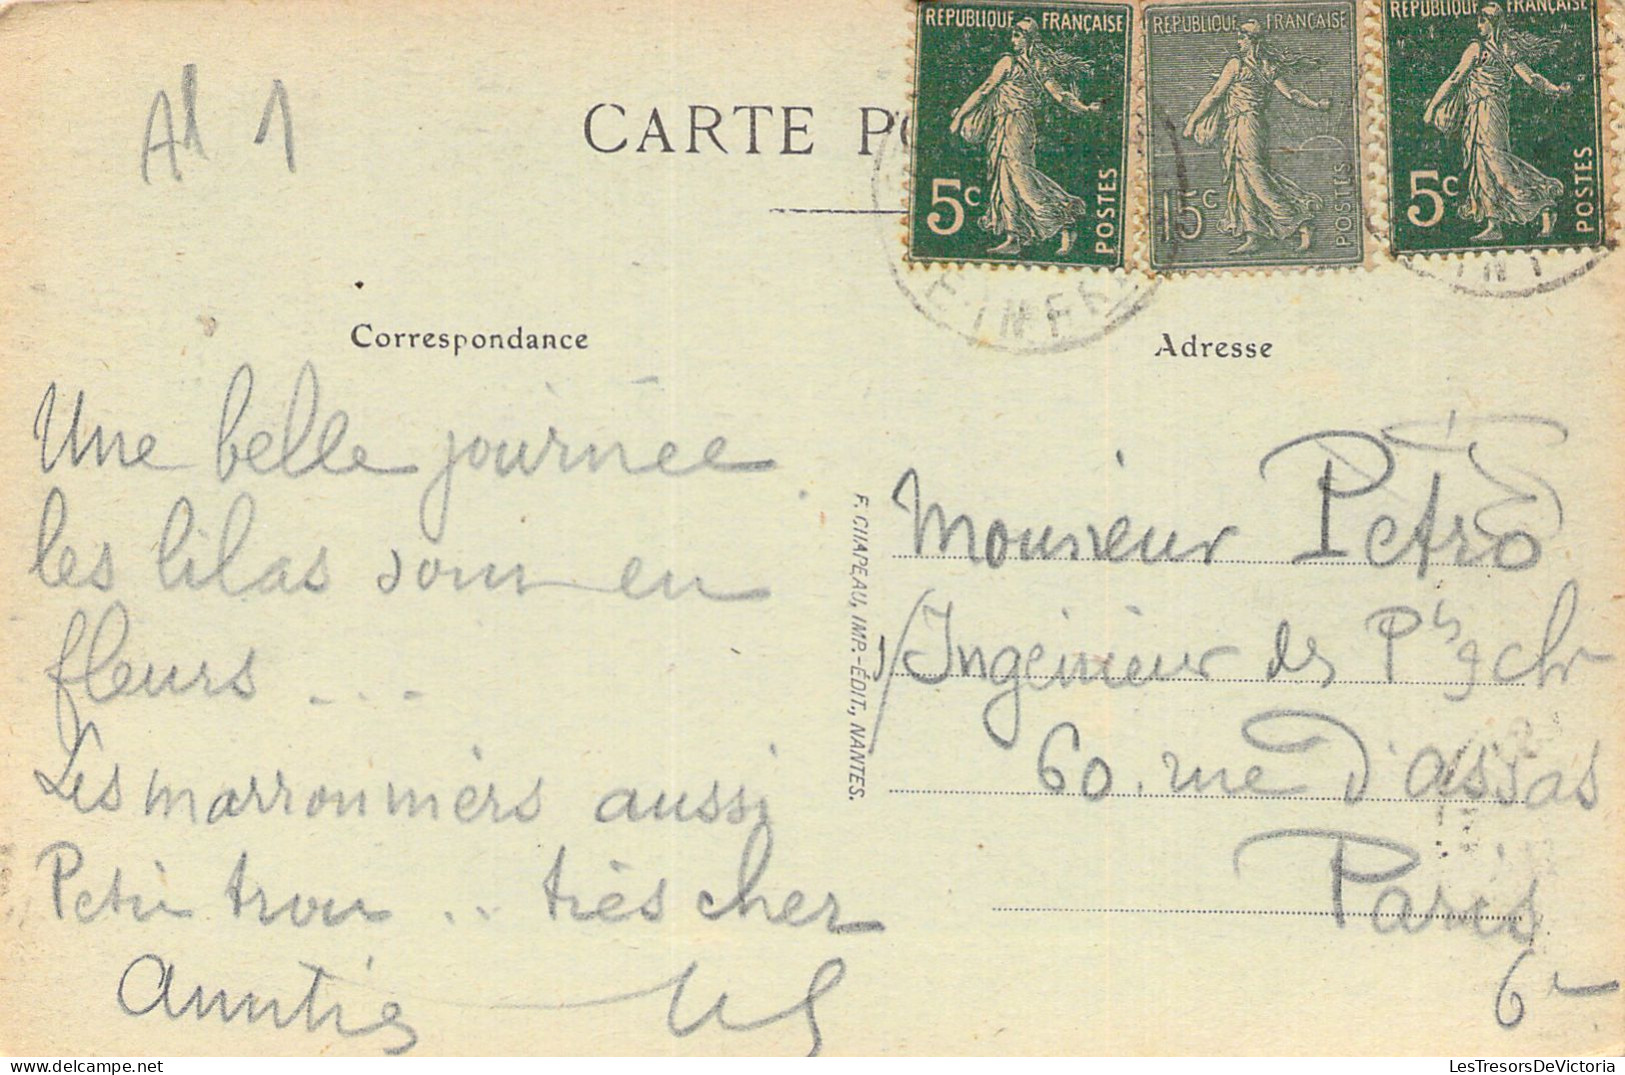 Al 1
CARTE PO
RÉPUBLIQUE FRANÇAISE
5c
POSTES
RÉPUBLIQUE FRANÇAISE
15c
POSTES
RÉPUBLIQUE FRANÇAISE
5c
POSTES
E INFRE
INF
Correspondance
Une belle journée
les lilas sont en
fleurs ...
Les marronniers aussi
Petit trou .. très cher
Amitiés
F. CHAPEAU, IMP.-ÉDIT., NANTES.
Adresse
Monsieur Petro
Ingénieur des Pts & Ch
60. rue d'assas
Paris
6e
LesTresorsDeVictoria